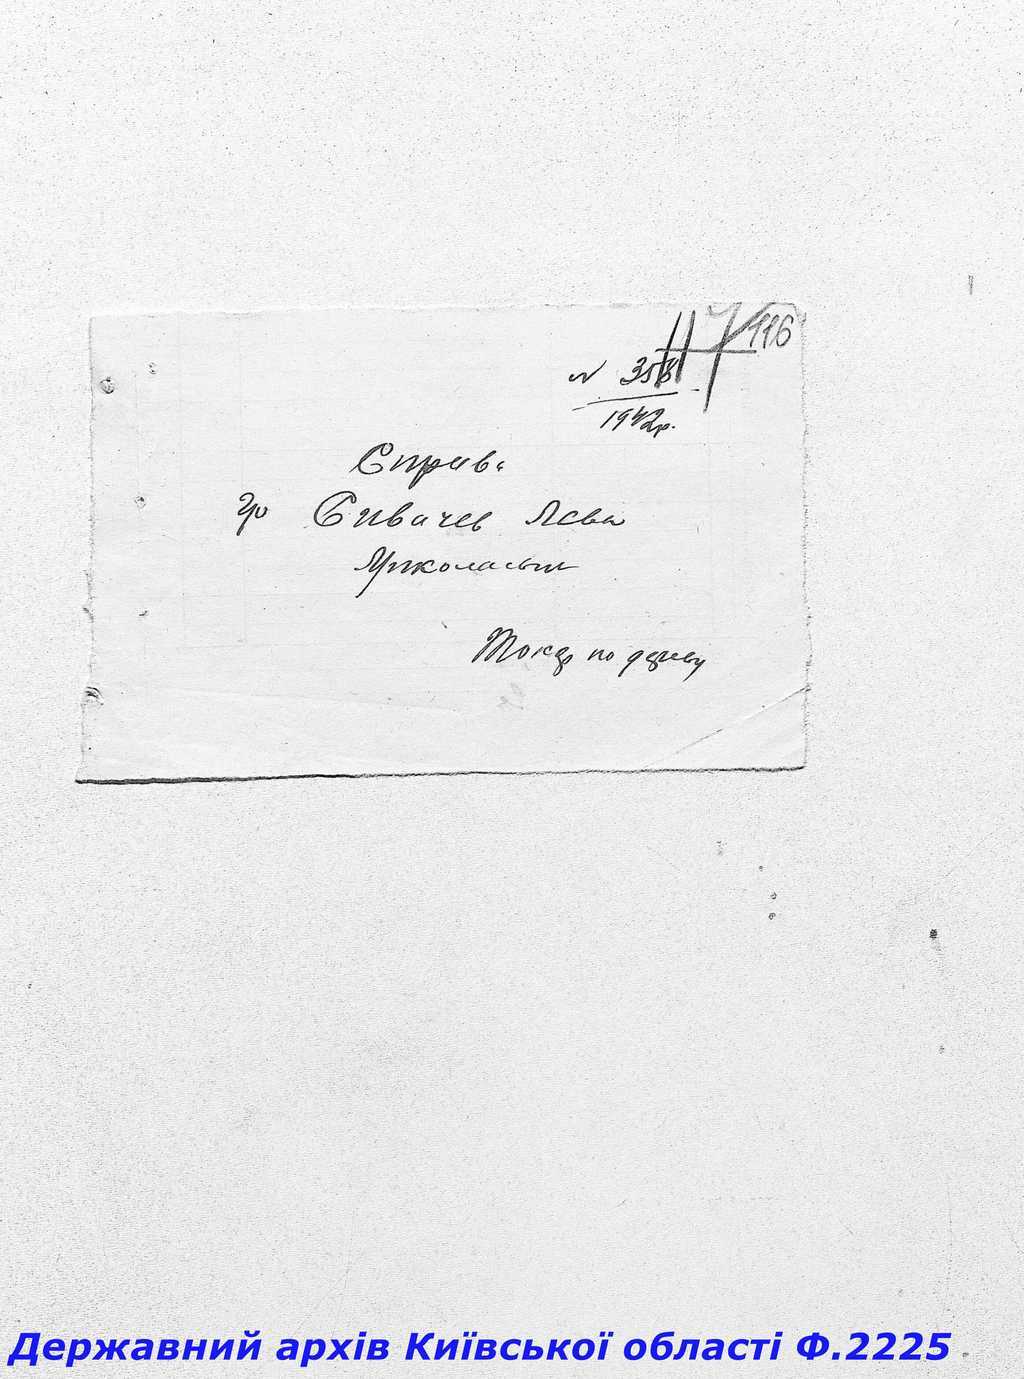 117 116
N 358
1942р.
Справа
гр Сивачев Лева
Миколаєвич
Токар по дереву
Державний архів Київської області Ф.2225